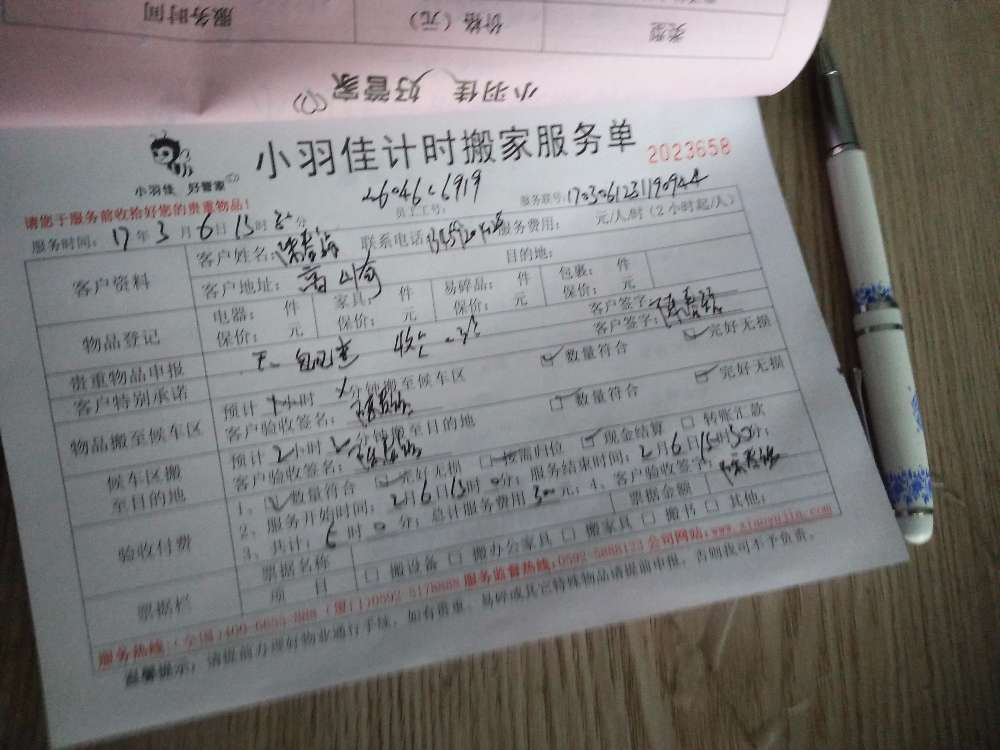 类型 价格(元) 服务时间
小羽佳 好管家
小羽佳 好管家
小羽佳计时搬家服务单
2023658
请您于服务前收拾好您的贵重物品!
员工工号: 26046 6919
服务联号: 1703061231190944
服务时间: 17年3月6日13时30分
客户资料
客户姓名:
联系电话
服务费用: 元/人/时(2小时起/人)
客户地址:
目的地:
物品登记
电器: 件 家具: 件 易碎品: 件 包裹: 件
保价: 元 保价: 元 保价: 元 保价: 元
贵重物品申报
客户签字:
客户特别承诺
客户签字:
物品搬至候车区
预计1小时 分钟搬至候车区 数量符合 完好无损
客户验收签名:
候车区搬至目的地
预计2小时 分钟搬至目的地 数量符合 完好无损
客户验收签名:
验收付费
1、数量符合 完好无损 按需归位 现金结算 转账汇款
2、服务开始时间: 2月6日13时0分; 服务结束时间: 2月6日15时30分;
3、共计: 时0分; 总计服务费用300元; 4、客户验收签字:
票据栏
票据名称 票据金额
项目 搬设备 搬办公家具 搬家具 搬书 其他:
服务热线:(全国)400-6655-888 (厦门)0592-5178888 服务监督热线:0592-5888123 公司网站:www.xiaoyujia.com
温馨提示: 请提前办理好物业通行手续, 如有贵重、易碎或其它特殊物品请提前申报, 否则我司不予负责。